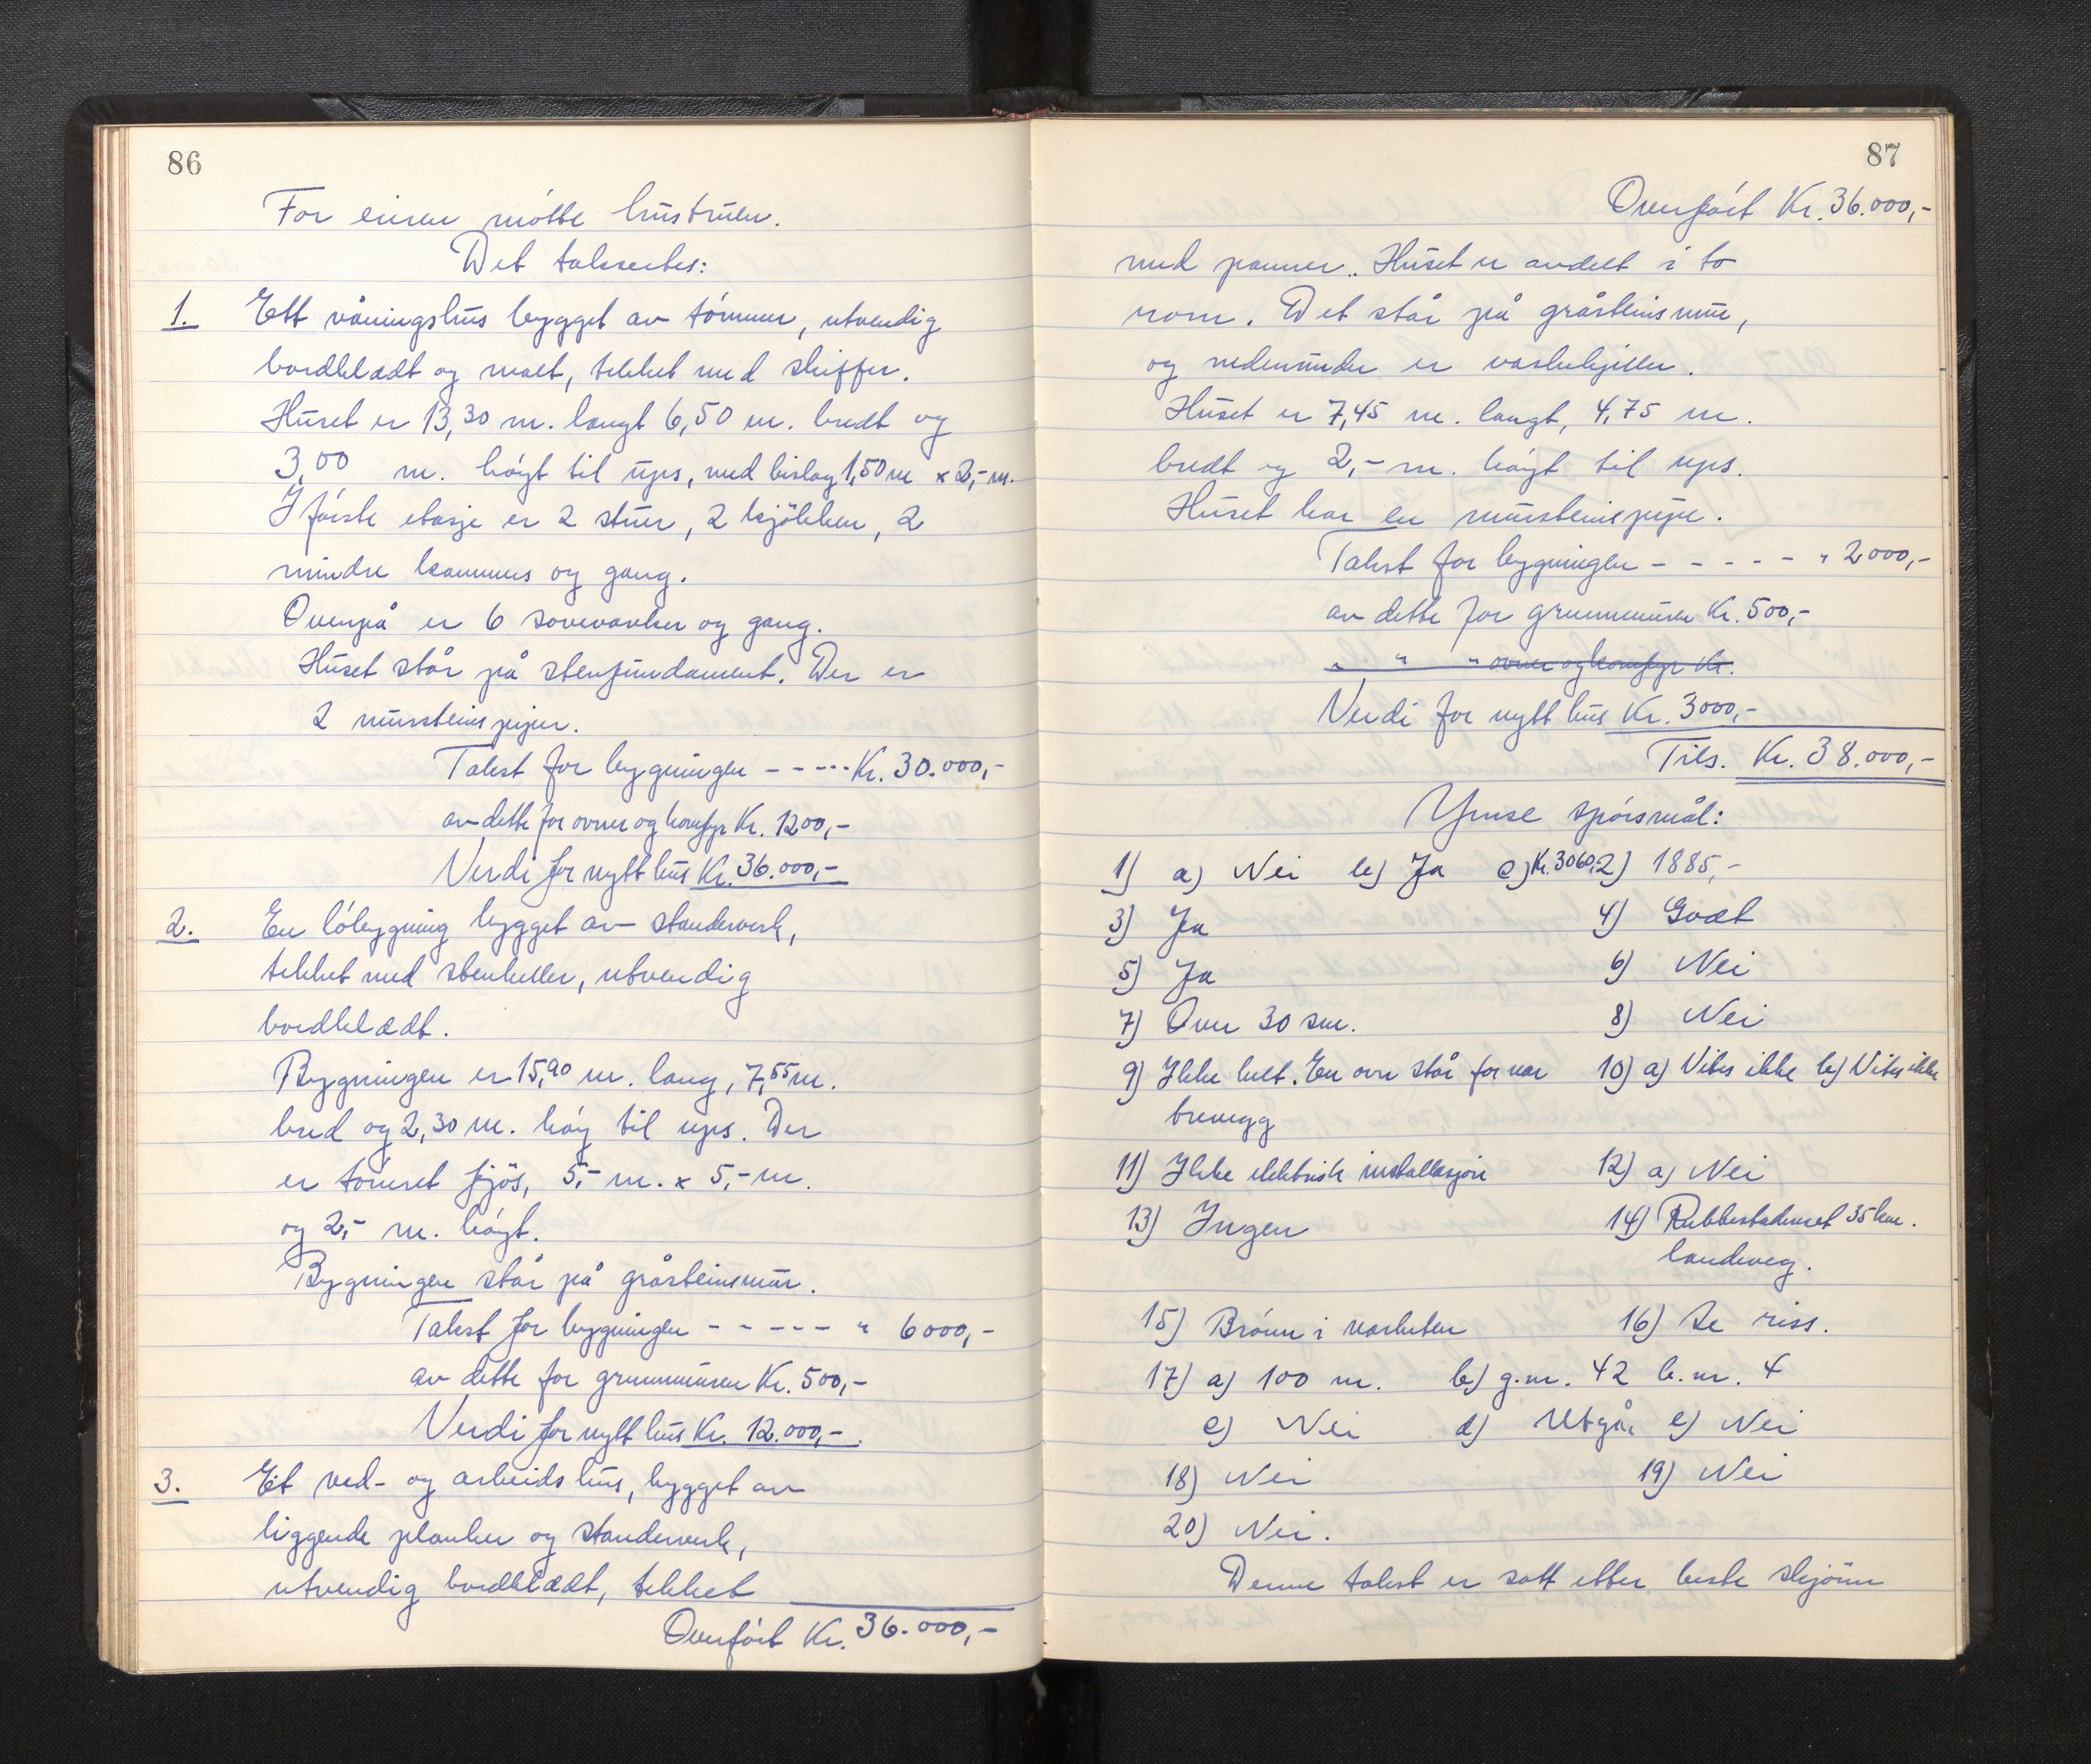 86
For eieren møtte hustruen.
Det takseertes:
1. Ett våningshus bygget av tømmer, utvendig
bordklædt og malt, tekket med skiffer.
Huset er 13,30 m. langt 6,50 m. bredt og
3,00 m. høgt til ups, med bislag 1,50 m x 2,- m.
I første etasje er 2 stuer, 2 kjøkken, 2
mindre kammers og gang.
Ovenpå er 6 soveværker og gang.
Huset står på stenfundament. Der er
2 mursteinspiper.
Takst for bygningen - - - - - Kr. 30.000,-
av dette for ovner og komfyr Kr. 1200,-
Verdi for nytt hus Kr. 36.000,-
2. En løbygning bygget av standerverk,
tekket med stenheller, utvendig
bordklædt.
Bygningen er 15,90 m. lang, 7,55 m.
bred og 2,30 m. høg til ups. Der
er tømret fjøs, 5,- m. x 5,- m.
og 2,- m. høgt.
Bygningen står på gråsteinsmur.
Takst for bygningen - - - - - " 6000,-
av dette for grunnmuren Kr. 500,-
Verdi for nytt hus Kr. 12.000,-
3. Et ved- og arbeidshus, bygget av
liggende planker og standerverk,
utvendig bordklædt, tekket
Overført Kr. 36.000,-
87
Overført Kr. 36.000,-
med panner. Huset er avdelt i to
rom. Det står på gråsteinsmur,
og nedenunder er vaskekjeller.
Huset er 7,45 m. langt, 4,75 m.
bredt og 2,- m. høgt til ups.
Huset har en mursteinspipe.
Takst for bygningen - - - - - " 2000,-
av dette for grunnmuren Kr. 500,-
" " " ovner og komfyr Kr.
Verdi for nytt hus Kr. 3000,-
Tils. Kr. 38.000,-
Ymse spørsmål:
1) a) Nei b) Ja c) Kr. 3060,- 2) 1885,-
3) Ja 4) Godt
5) Ja 6) Nei
7) Over 30 sm. 8) Nei
9) Ikke helt. En ovn står for nær 10) a) Vites ikke b) Vites ikke
trevegg
11) Ikke elektrisk installasjon 12) a) Nei
13) Ingen 14) Rubbestadneset 35 km.
landeveg.
15) Brønn i nærheten 16) Se riss.
17) a) 100 m. b) g.nr. 42 b.nr. 4
c) Nei d) Utgår e) Nei
18) Nei 19) Nei
20) Nei.
Denne takst er satt etter beste skjønn